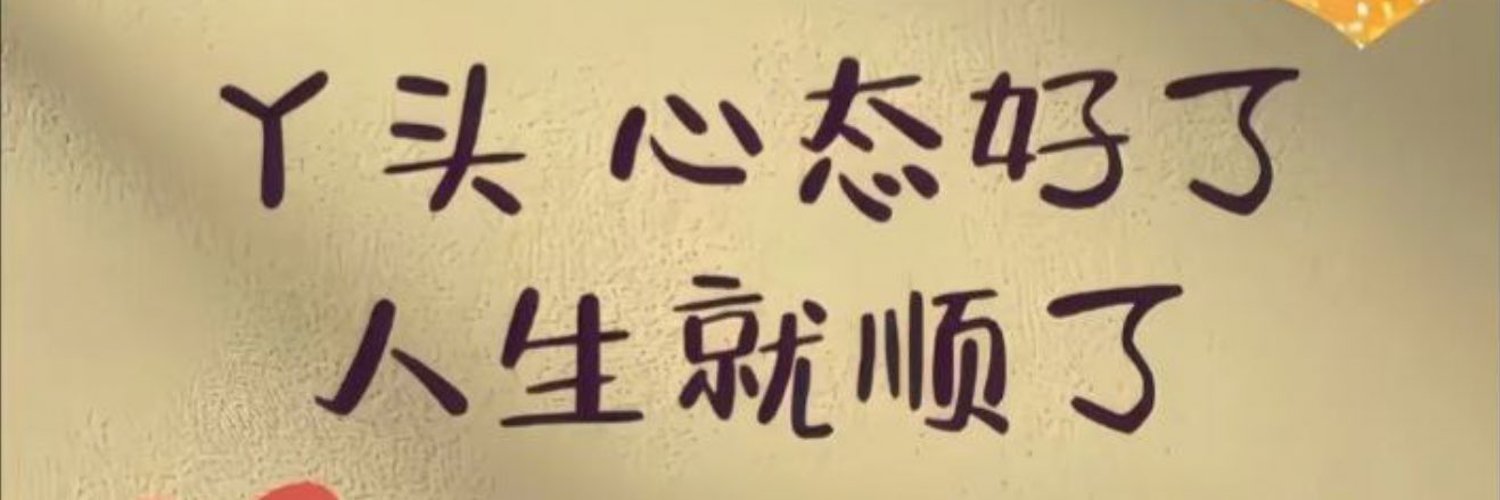 丫头 心态好了
人生就顺了